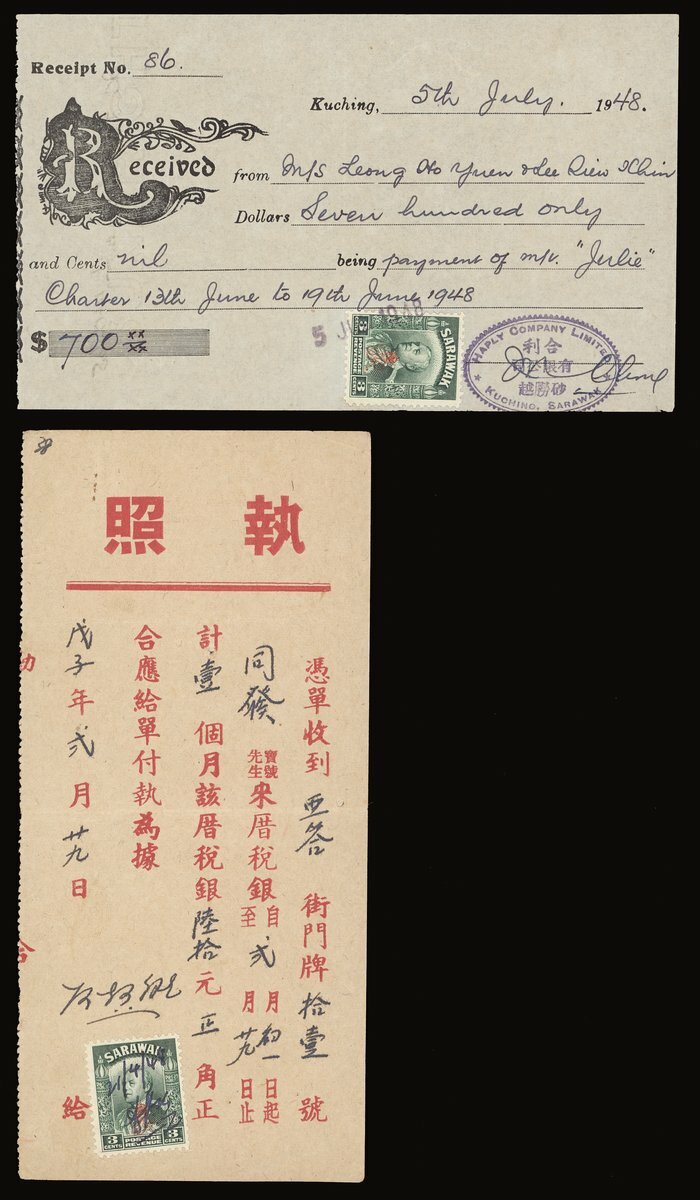 Receipt No. 86.
Kuching, 5th July. 1948.
Received from M/s Leong Ho Yuen & Lee Siew Khin
Dollars Seven hundred only
and Cents nil being payment of m/v. "Julie"
Charter 13th June to 19th June 1948
$ 700 xx/xx
1948
SARAWAK
3
3
HAPLY COMPANY LIMITED
合利
有限公司
砂勝越
KUCHING, SARAWAK
執照
憑單收到亞答街門牌拾壹號
同發寶號先生來厝稅銀自弍月初一日起至月廿九日止
計壹個月該厝稅銀陸拾元正角正
合應給單付執為據
戊子年弍月廿九日
給
SARAWAK
3 CENTS
POSTAGE
REVENUE
3 CENTS